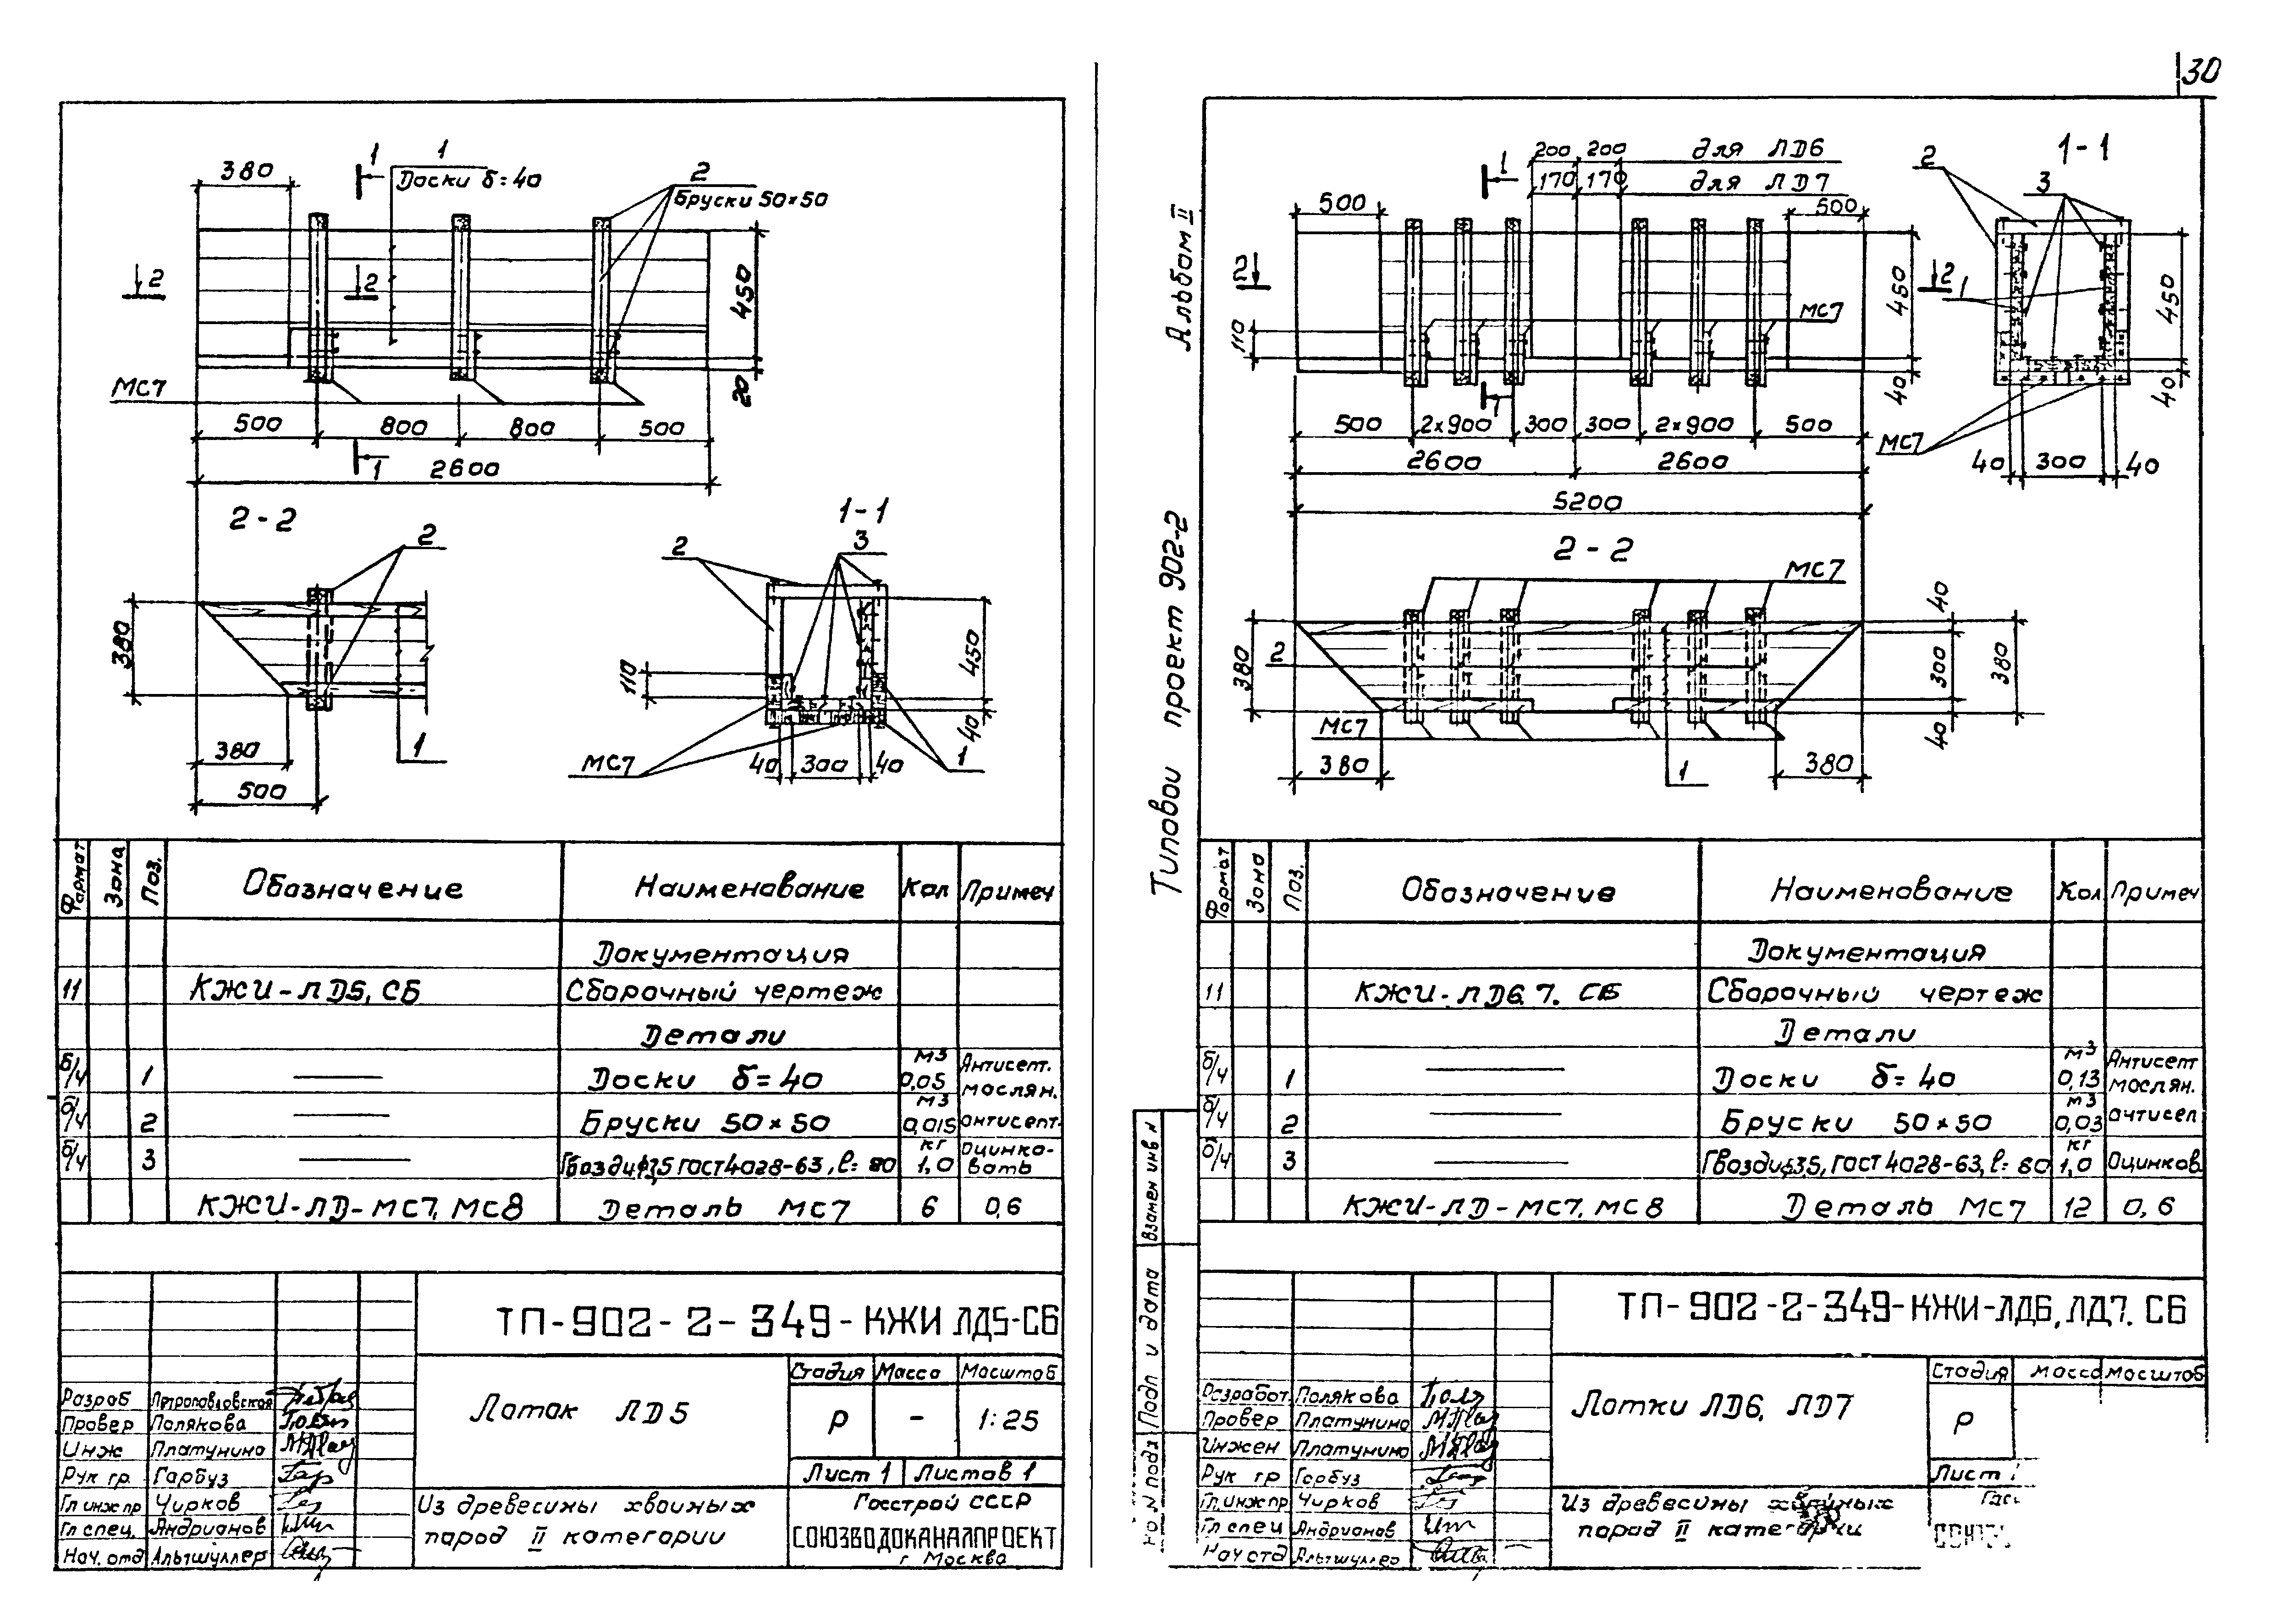 30
380
1
1
Доски δ=40
2
Бруски 50×50
2
2
450
20
МС7
500 800 800 500
1
2600
2-2
2
380
380
500
1
1-1
2
3
110
450
40
МС7
40 300 40
1
Формат Зона Поз. Обозначение Наименование Кол Примеч
Документация
11 КЖИ-ЛД5, СБ Сборочный чертеж
Детали
б/ч 1 Доски δ=40 м3 0,05 Антисепт. маслян.
б/ч 2 Бруски 50×50 м3 0,015 антисепт.
б/ч 3 Гвозди ГОСТ 4028-63, l=80 кг 1,0 Оцинковать
КЖИ-ЛД-МС7, МС8 Деталь МС7 6 0,6
ТП-902-2-349-КЖИ ЛД5-СБ
Лоток ЛД5
Стадия Масса Масштаб
Р - 1:25
Лист 1 Листов 1
Разраб Петропавловская
Провер Полякова
Инж Платунино
Рук гр. Гарбуз
Гл инж пр Чирков
Гл спец. Андрианов
Нач. отд Альтшуллер
Из древесины хвойных
пород II категории
Госстрой СССР
СОЮЗВОДОКАНАЛПРОЕКТ
г. Москва
Альбом II
Типовой проект 902-2
Взамен инв N
Подп и дата
N подл
200 200 для ЛД6
170 170 для ЛД7
1
500 500
2
110
МС7
450
40
1
500 2×900 300 300 2×900 500
2600 2600
5200
1-1
2
3
2
1
450
40
МС7
40 300 40
2-2
МС7
380
2
МС7
380 380
1
40
300
40
380
Формат Зона Поз. Обозначение Наименование Кол Примеч
Документация
11 КЖИ-ЛД6.7. СБ Сборочный чертеж
Детали
б/ч 1 Доски δ=40 м3 0,13 Антисепт маслян.
б/ч 2 Бруски 50×50 м3 0,03 антисеп
б/ч 3 Гвозди ГОСТ 4028-63, l=80 кг 1,0 Оцинков
КЖИ-ЛД-МС7, МС8 Деталь МС7 12 0,6
ТП-902-2-349-КЖИ-ЛД6, ЛД7. СБ
Лотки ЛД6, ЛД7
Стадия Масса Масштаб
Р
Лист
Разработ Полякова
Провер Платунино
Инжен Платунино
Рук гр Гарбуз
Гл. инж пр Чирков
Гл спец Андрианов
Нач отд Альтшуллер
Из древесины хвойных
пород II категории